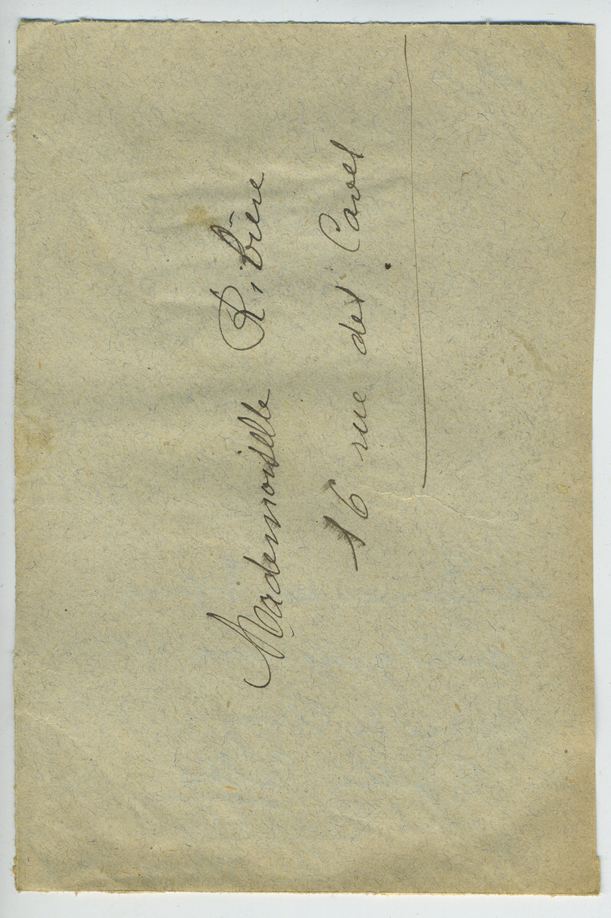 Mademoiselle Ribière
16 rue des Caves